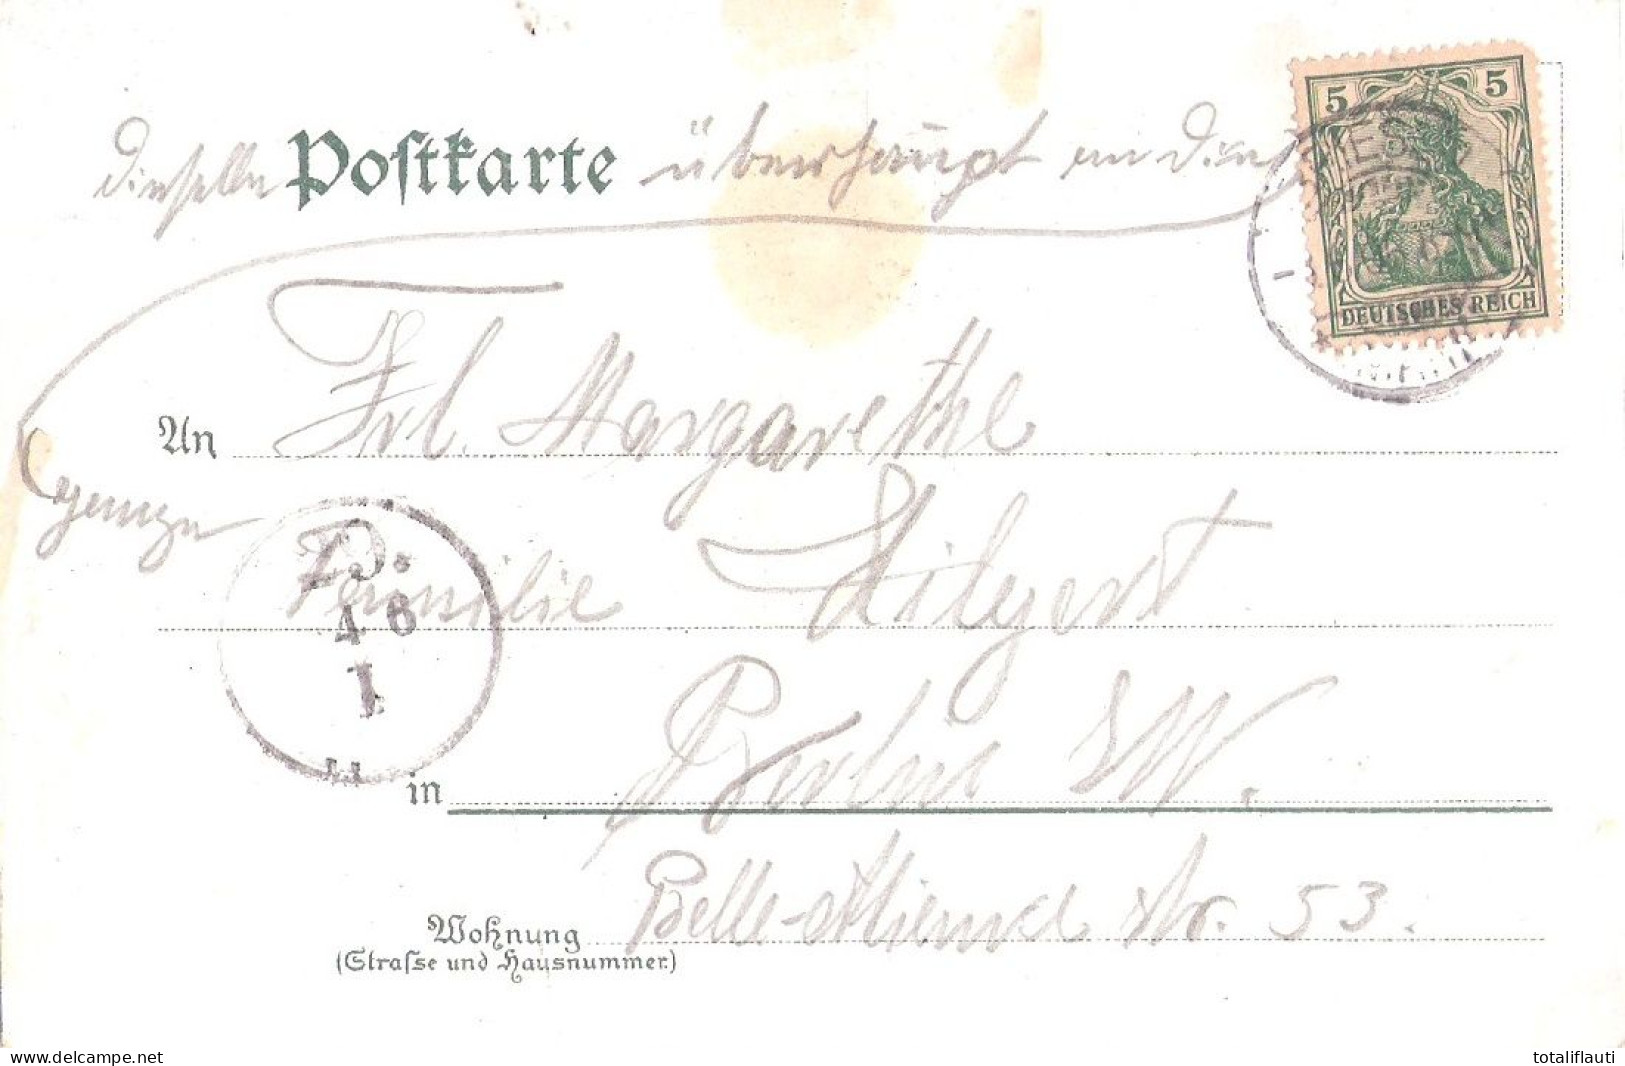 dieselbe Postkarte überhaupt an Dienst
5 5
DEUTSCHES REICH
Frl. Margarethe
An
Familie Hilgert
4 6
1
in Berlin SW.
Belle-Alliance Str. 53.
Wohnung
(Strasse und Hausnummer)
www.delcampe.net
totaliflauti